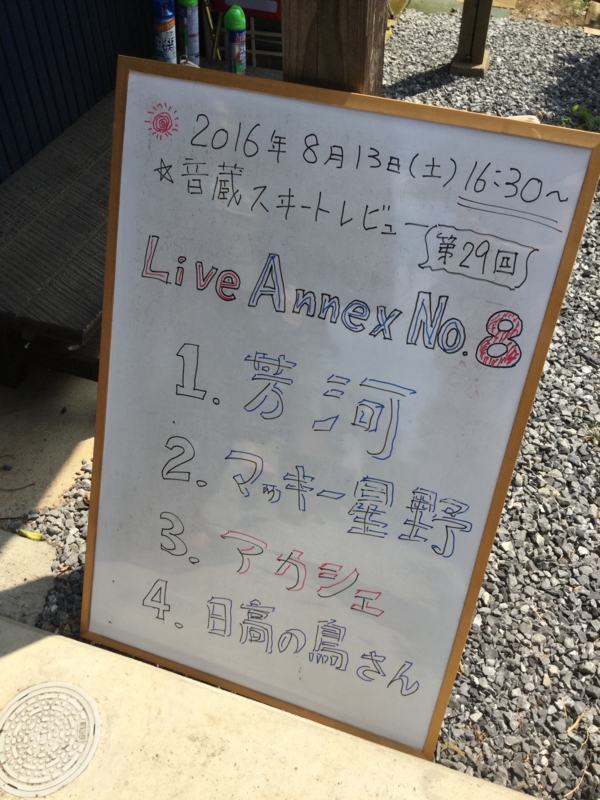 2016年 8月13日(土) 16:30～
☆音蔵スヰートレビュー 第29回
Live Annex No.8
1. 芳河
2. マッキー星野
3. アカシェ
4. 日高の鳥さん